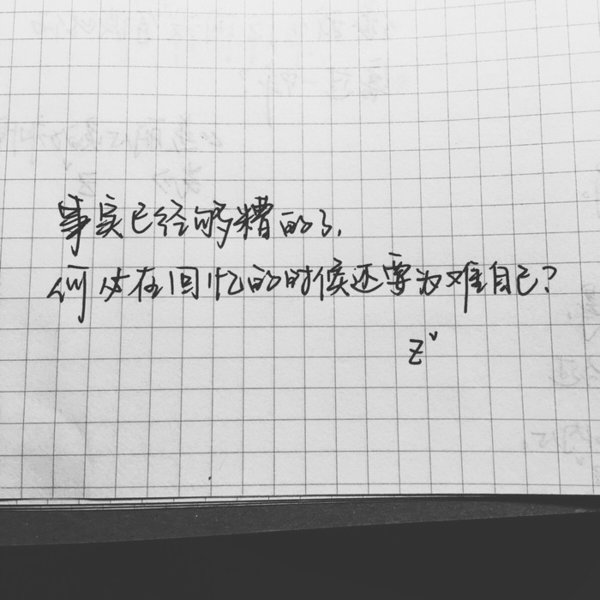 事实已经够糟的了，
何必在回忆的时候还要为难自己？
Zv